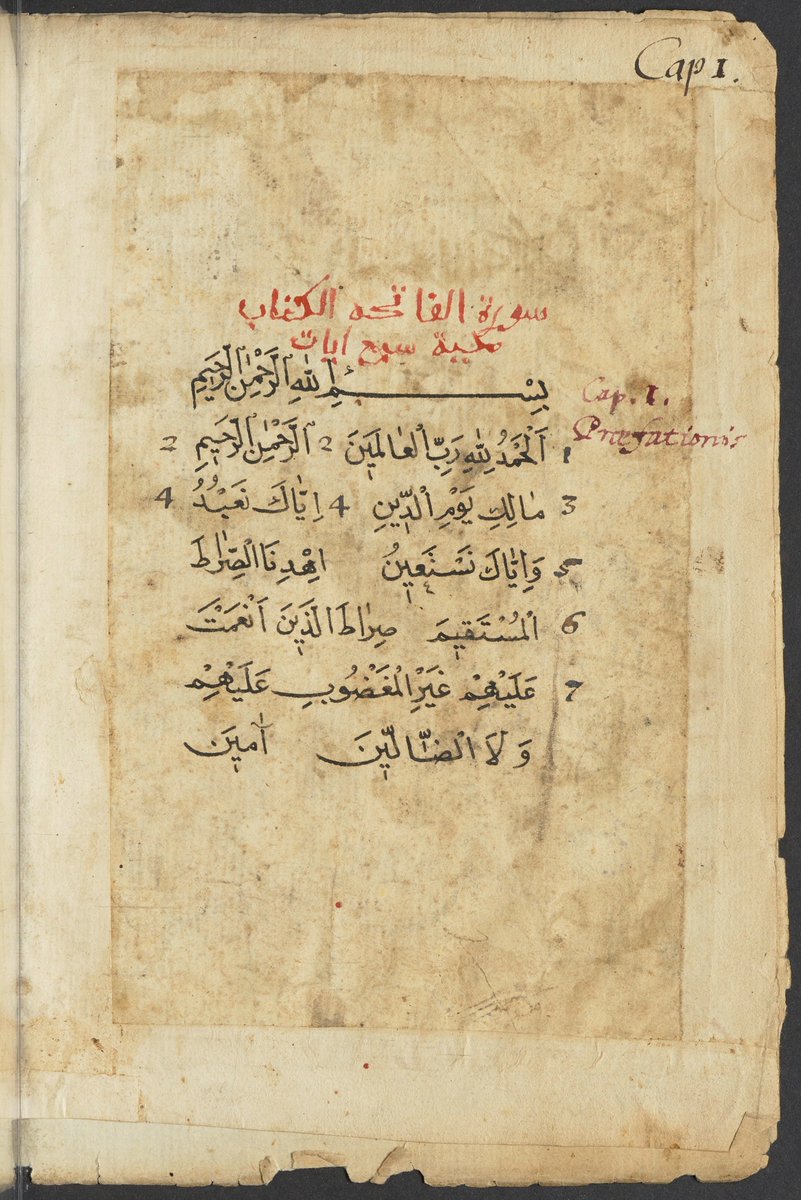 Cap 1.
سورة الفاتحه الكتاب
مكية سبع ايات
بِسْمِ ٱللّٰهِ ٱلرَّحْمٰنِ ٱلرَّحِيمِ
Cap. 1.
Præfationis
1 اَلْحَمْدُ لِلّٰهِ رَبِّ اْلعٰالَمِينَ 2 اَلرَّحْمٰنِ الرَّحِيمِ 2
3 مٰالِكِ يَوْمِ اْلدِّينِ 4 اِيّٰاكَ نَعْبُدُ 4
5 وَاِيّٰاكَ نَسْتَعِينُ اِهْدِنَا الْصِّرٰاطَ
6 اْلمُسْتَقِيمَ صِرٰاطَ الَّذِينَ اَنْعَمْتَ
7 عَلَيْهِمْ غَيْرِ الْمَغْضُوبِ عَلَيْهِمْ
وَلَا الْضّٰالِّينَ آمِينَ